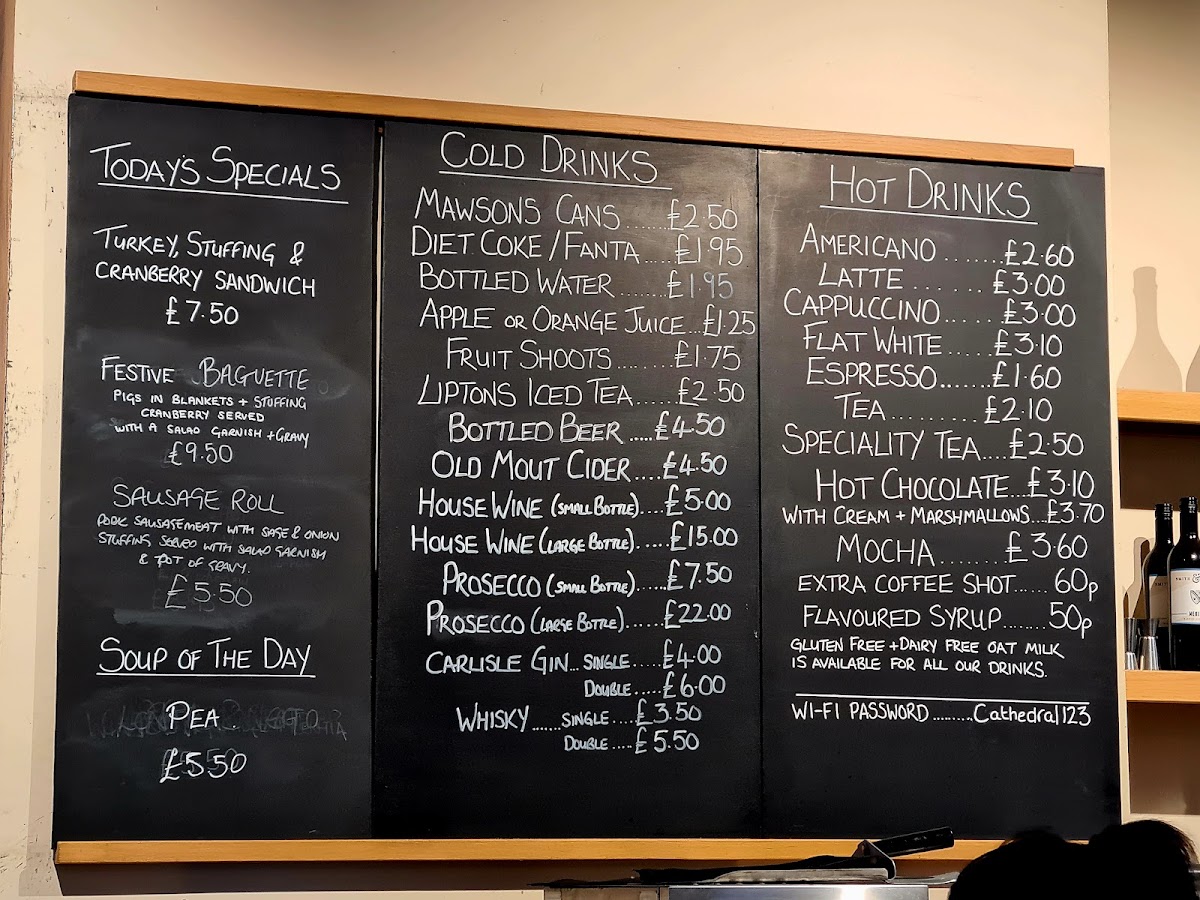 TODAY'S SPECIALS
TURKEY, STUFFING &
CRANBERRY SANDWICH
£7.50
FESTIVE BAGUETTE
PIGS IN BLANKETS + STUFFING
CRANBERRY SERVED
WITH A SALAD GARNISH + GRAVY
£9.50
SAUSAGE ROLL
PORK SAUSAGEMEAT WITH SAGE & ONION
STUFFING SERVED WITH SALAD GARNISH
& POT OF GRAVY.
£5.50
SOUP OF THE DAY
PEA
£5.50
COLD DRINKS
MAWSONS CANS ....... £2.50
DIET COKE / FANTA ..... £1.95
BOTTLED WATER ....... £1.95
APPLE OR ORANGE JUICE... £1.25
FRUIT SHOOTS ....... £1.75
LIPTONS ICED TEA..... £2.50
BOTTLED BEER ..... £4.50
OLD MOUT CIDER.... £4.50
HOUSE WINE (SMALL BOTTLE).... £5.00
HOUSE WINE (LARGE BOTTLE)..... £15.00
PROSECCO (SMALL BOTTLE)..... £7.50
PROSECCO (LARGE BOTTLE)..... £22.00
CARLISLE GIN... SINGLE .... £4.00
DOUBLE ..... £6.00
WHISKY ....... SINGLE .... £3.50
DOUBLE .... £5.50
HOT DRINKS
AMERICANO ........ £2.60
LATTE ....... £3.00
CAPPUCCINO...... £3.00
FLAT WHITE ..... £3.10
ESPRESSO....... £1.60
TEA......... £2.10
SPECIALITY TEA.... £2.50
HOT CHOCOLATE... £3.10
WITH CREAM + MARSHMALLOWS... £3.70
MOCHA........ £3.60
EXTRA COFFEE SHOT...... 60p
FLAVOURED SYRUP........ 50p
GLUTEN FREE + DAIRY FREE OAT MILK
IS AVAILABLE FOR ALL OUR DRINKS.
WI-FI PASSWORD ......... Cathedral123